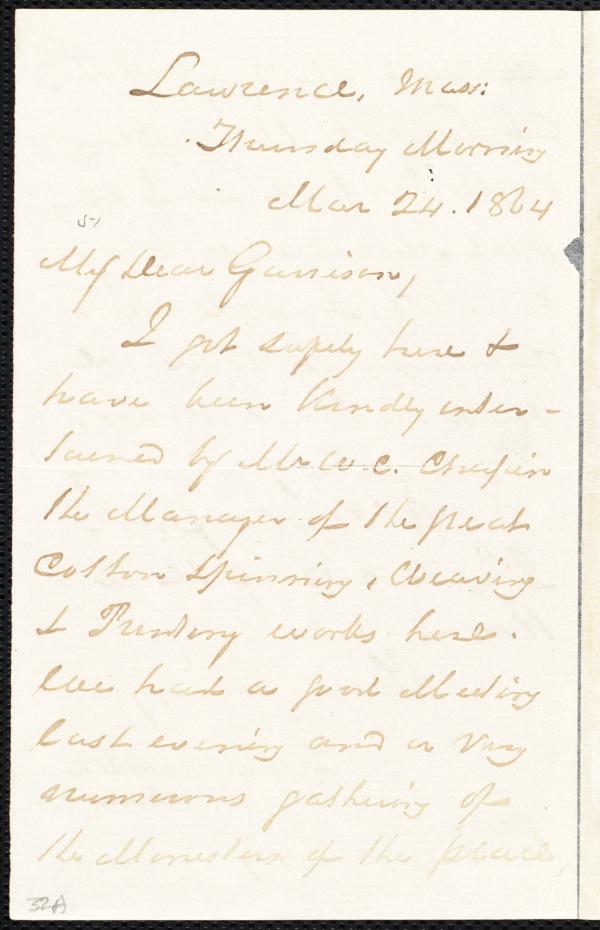 Lawrence, Mass:
Thursday Morning
Mar 24. 1864
51
My Dear Garrison,
I got safely here &
have been kindly enter-
tained by Mr W. C. Chapin
the Manager of the great
Cotton Spinning, Weaving
& Printing works here.
We had a good Meeting
last evening and a very
numerous gathering of
the Ministers of the place,
32A